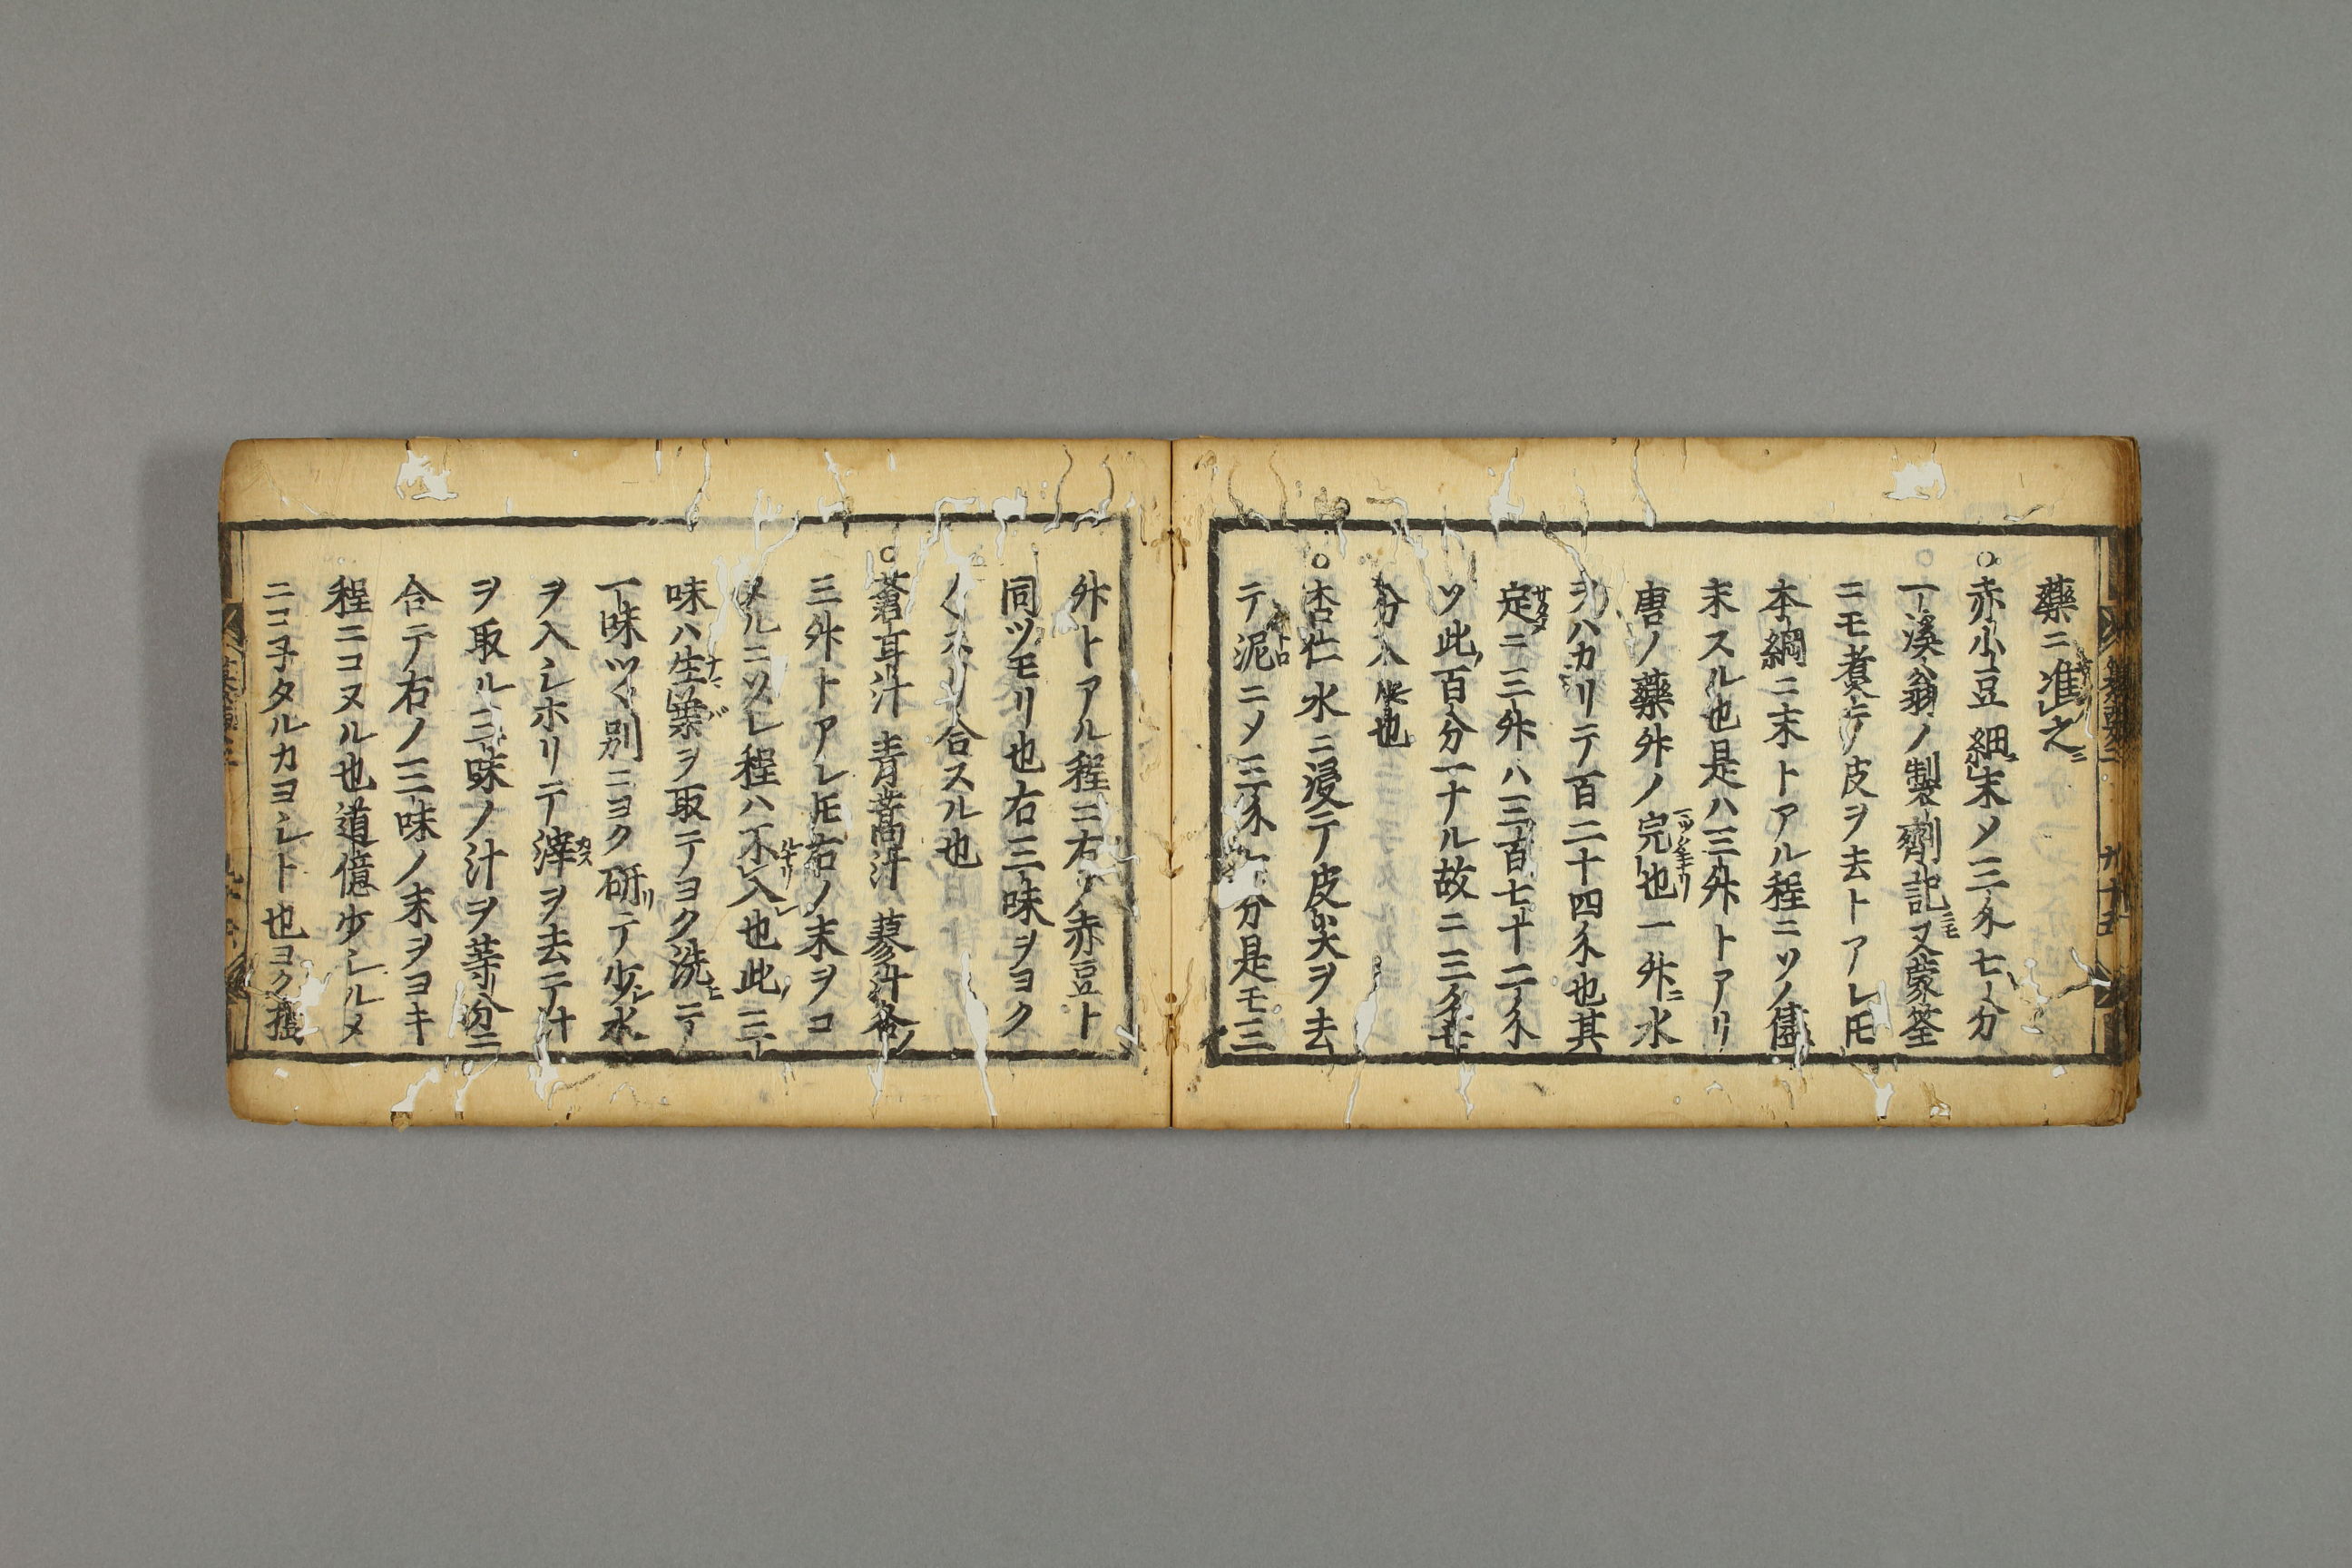 藥ニ准之
○赤小豆 細末メ三匁七分
一溪翁ノ製劑記ニモ又蒙筌
ニモ煮テ皮ヲ去トアレ𪜈
本綱ニ末トアル程ニツノ儘
末スル也是ハ三舛トアリ
唐ノ藥舛ノ完也一舛ニ水
ヲハカリテ百二十四匁也其
定ニ三舛ハ三百七十二匁
ツ此百分一ナル故ニ三匁七
分入ル也
○杏仁 水ニ浸テ皮尖ヲ去
テ泥ニメ三匁 分是モ三
舛トアル程ニ右ノ赤豆ト
同ツモリ也右三味ヲヨク
〱 リ合スル也
○蒼耳汁 青蒿汁 蓼汁各
三舛トアレ𪜈右ノ末ヲコ
メルニソレ程ハ不入也此三
味ハ生葉ヲ取テヨク洗テ
一味ツヽ別ニヨク研テ少水
ヲ入シホリテ滓ヲ去テ汁
ヲ取ル三味ノ汁ヲ等分ニ
合テ右ノ三味ノ末ヲヨキ
程ニコヌル也道億少シルメ
ニコ子タルカヨシト也ヨク